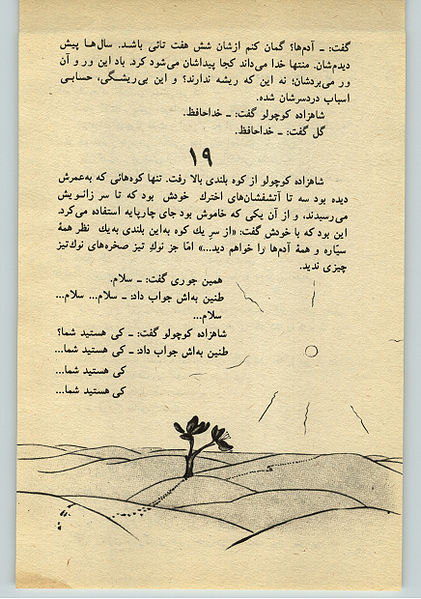 گفت: ـ آدم‌ها؟ گمان کنم ازشان شش هفت تائی باشد. سال‌ها پیش
دیدم‌شان. منتها خدا می‌داند کجا پیداشان می‌شود کرد. باد این ور و آن
ور می‌بردشان؛ نه این که ریشه ندارند؟ و این بی‌ریشگی، حسابی
اسباب دردسرشان شده.
شاهزاده کوچولو گفت: ـ خداحافظ.
گل گفت: ـ خداحافظ.
۱۹
شاهزاده کوچولو از کوه بلندی بالا رفت. تنها کوه‌هائی که به‌عمرش
دیده بود سه تا آتشفشان‌های اخترك خودش بود که تا سر زانویش
می‌رسیدند، و از آن یکی که خاموش بود جای چارپایه استفاده می‌کرد.
این بود که با خودش گفت: «از سر یك کوه به‌این بلندی به‌یك نظر همهٔ
سیّاره و همهٔ آدم‌ها را خواهم دید...» امّا جز نوك تیز صخره‌های نوك‌تیز
چیزی ندید.
همین جوری گفت: ـ سلام.
طنین به‌اش جواب داد: ـ سلام... سلام...
سلام...
شاهزاده کوچولو گفت: ـ کی هستید شما؟
طنین به‌اش جواب داد: ـ کی هستید شما...
کی هستید شما...
کی هستید شما...